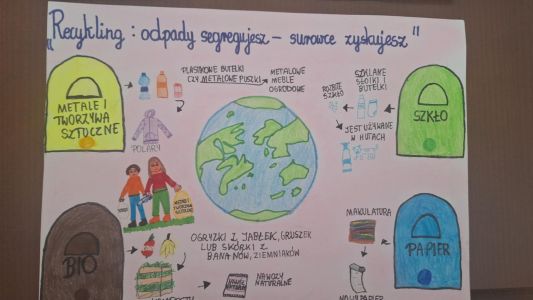 „Recykling : odpady segregujesz – surowce zyskujesz"
METALE I
TWORZYWA
SZTUCZNE
PLASTIKOWE BUTELKI
CZY METALOWE PUSZKI
METALOWE
MEBLE
OGRODOWE
POLARY
ROZBITE
SZKŁO
SZKLANE
SŁOIKI I
BUTELKI
JEST UŻYWANE
W HUTACH
SZKŁO
BIO
OGRYZKI Z JABŁEK, GRUSZEK
LUB SKÓRKI Z
BANANÓW, ZIEMNIAKÓW
NAWOZY
NATURALNE
MAKULATURA
PAPIER